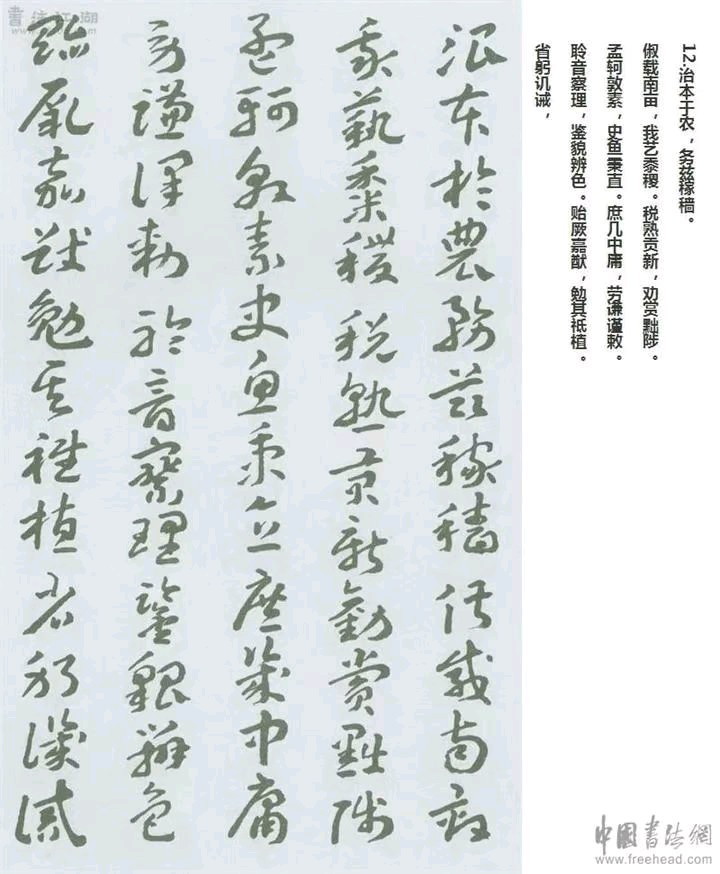 12.治本于农，务兹稼穑。
俶载南亩，我艺黍稷。税熟贡新，劝赏黜陟。
孟轲敦素，史鱼秉直。庶几中庸，劳谦谨敕。
聆音察理，鉴貌辨色。贻厥嘉猷，勉其祗植。
省躬讥诫，
治本於農務茲稼穡俶載南畝
我藝黍稷稅熟貢新勸賞黜陟
孟軻敦素史魚秉直庶幾中庸
勞謙謹勅聆音察理鑒貌辨色
貽厥嘉猷勉其祗植省躬譏誡
書法江湖
中國書法網
www.freehead.com